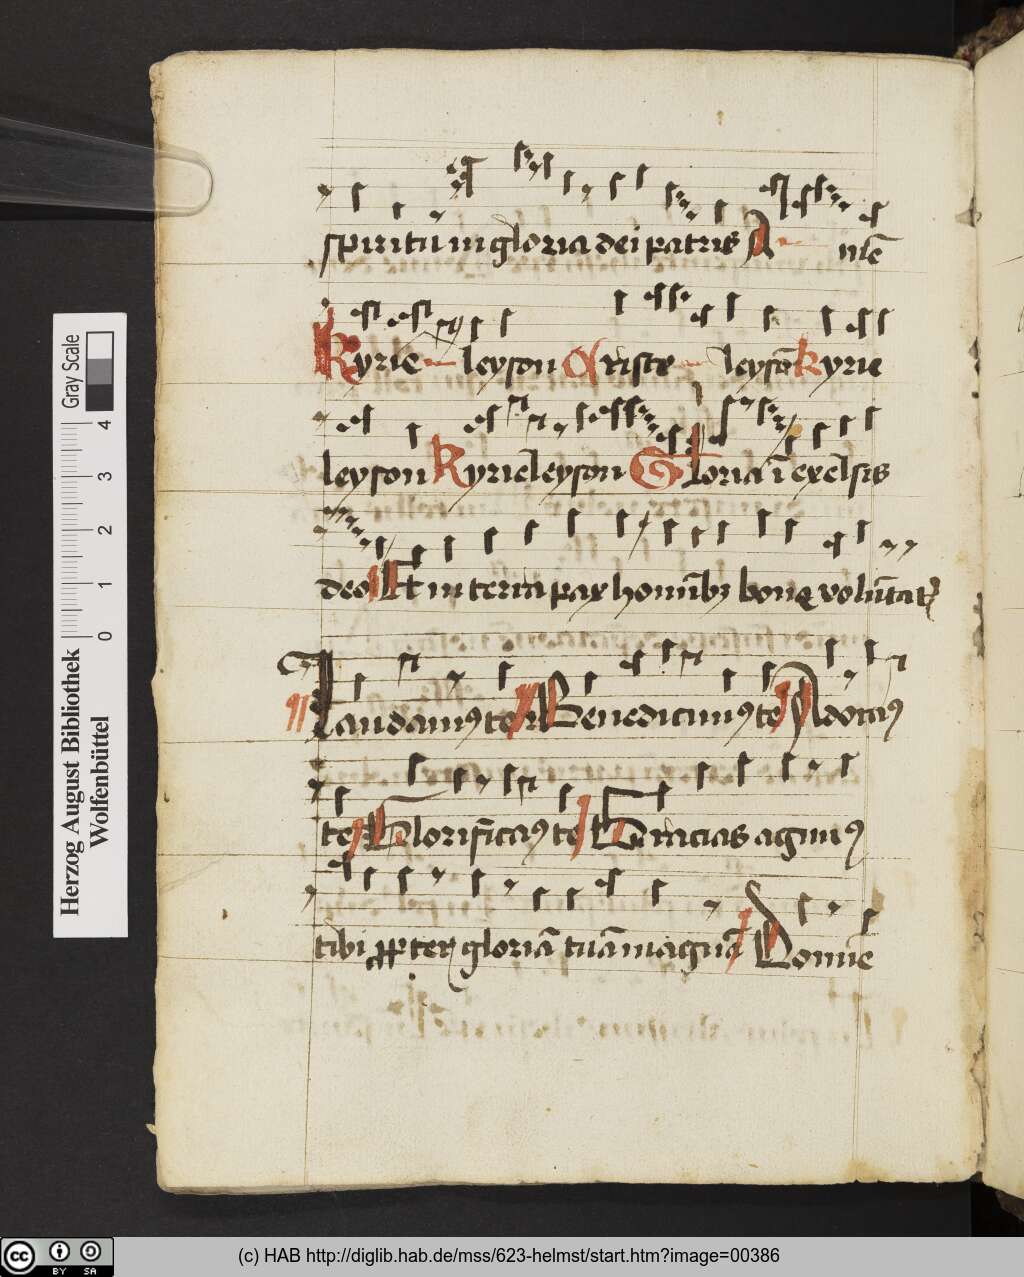 spiritu in gloria dei patris A- mē
Kyrie - leyson Christe - leysō kyrie
leyson Kyrieleyson Gloria ī exelsis
deo Et in terra pax hominibꝫ bone volūtatꝭ
Laudamꝰ te Benedicimꝰ te Adoramꝰ
te Glorificamꝰ te Gracias agimꝰ
tibi ꝓpter gloriā tuā magnā Domine
Gray Scale
4 3 2 1 0
Herzog August Bibliothek
Wolfenbüttel
cc BY SA
(c) HAB http://diglib.hab.de/mss/623-helmst/start.htm?image=00386